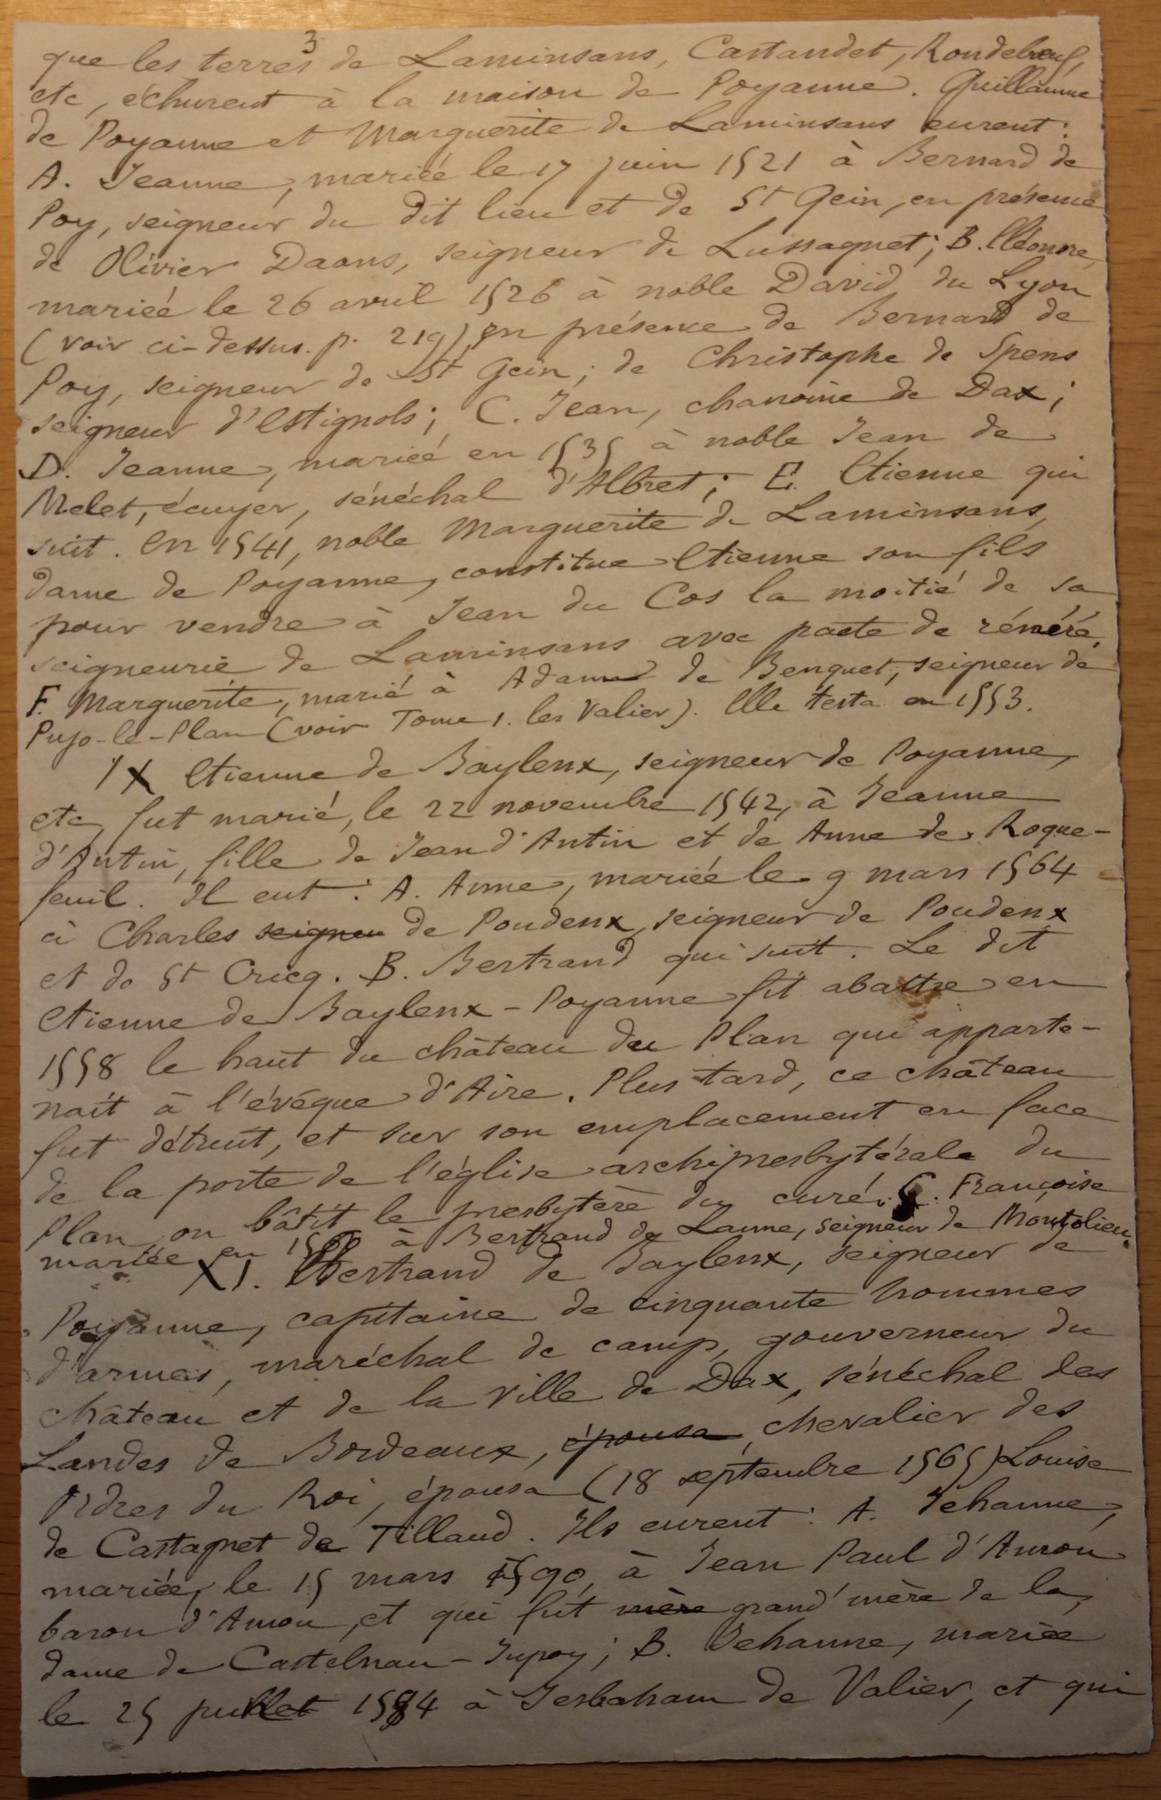 3
que les terres de Laminsans, Castandet, Rondebœuf,
etc, échurent à la maison de Poyanne. Guillaume
de Poyanne et Marguerite de Laminsans eurent:
A. Jeanne, mariée le 17 juin 1521 à Bernard de
Poy, seigneur du dit lieu et de St Gein, en présence
de Olivier Daons, seigneur de Lussagnet; B. Eléonore,
mariéé le 26 avril 1526 à noble David du Lyon
(voir ci-dessus. p. 219) en présence de Bernard de
Poy, seigneur de St Gein; de Christophe de Spens
seigneur d'Estignols; C. Jean, chanoine de Dax;
D. Jeanne, mariéé en 1535 à noble Jean de
Melet, écuyer, sénéchal d'Albret; E. Etienne qui
suit. En 1541, noble Marguerite de Laminsans,
dame de Poyanne, constitue Etienne son fils
pour vendre à Jean du Cos la moitié de sa
seigneurie de Laminsans avec pacte de réméré.
F. Marguerite, marié à Adam de Benquet, seigneur de
Pujo-le-Plan (voir Tome 1. les Valier). Elle testa en 1553.
IX Etienne de Baylenx, seigneur de Poyanne,
etc, fut marié, le 22 novembre 1542, à Jeanne
d'Antin, fille de Jean d'Antin et de Anne de Roque-
feuil. Il eut: A. Anne, mariéé le 9 mars 1564
à Charles seigneu de Poudenx, seigneur de Poudenx
et de St Cricq. B. Bertrand qui suit. Le dit
Etienne de Baylenx-Poyanne fit abattre en
1558 le haut du château du Plan qui apparte-
nait à l'évéque d'Aire. Plus tard, ce château
fut détruit, et sur son emplacement en face
de la porte de l'église archipresbytérale du
Plan, on bâtit le presbytère du curé. C. Françoise
mariée en à Bertrand de Laune, seigneur de Montolieu.
XI. Bertrand de Baylenx, seigneur de
Poyanne, capitaine de cinquante hommes
d'armes, maréchal de camp, gouverneur du
château et de la ville de Dax, sénéchal des
Landes de Bordeaux, épousa, chevalier des
Ordres du Roi, épousa (18 septembre 1565) Louise
de Castagnet de Tillaud. Ils eurent: A. Jehanne,
mariée, le 15 mars 1590, à Jean Paul d'Amou
baron d'Amou, et qui fut mère grand'mère de la
dame de Castelnau-Jupoy; B. Jehanne, mariée
le 25 juillet 1584 à de Valier, et qui